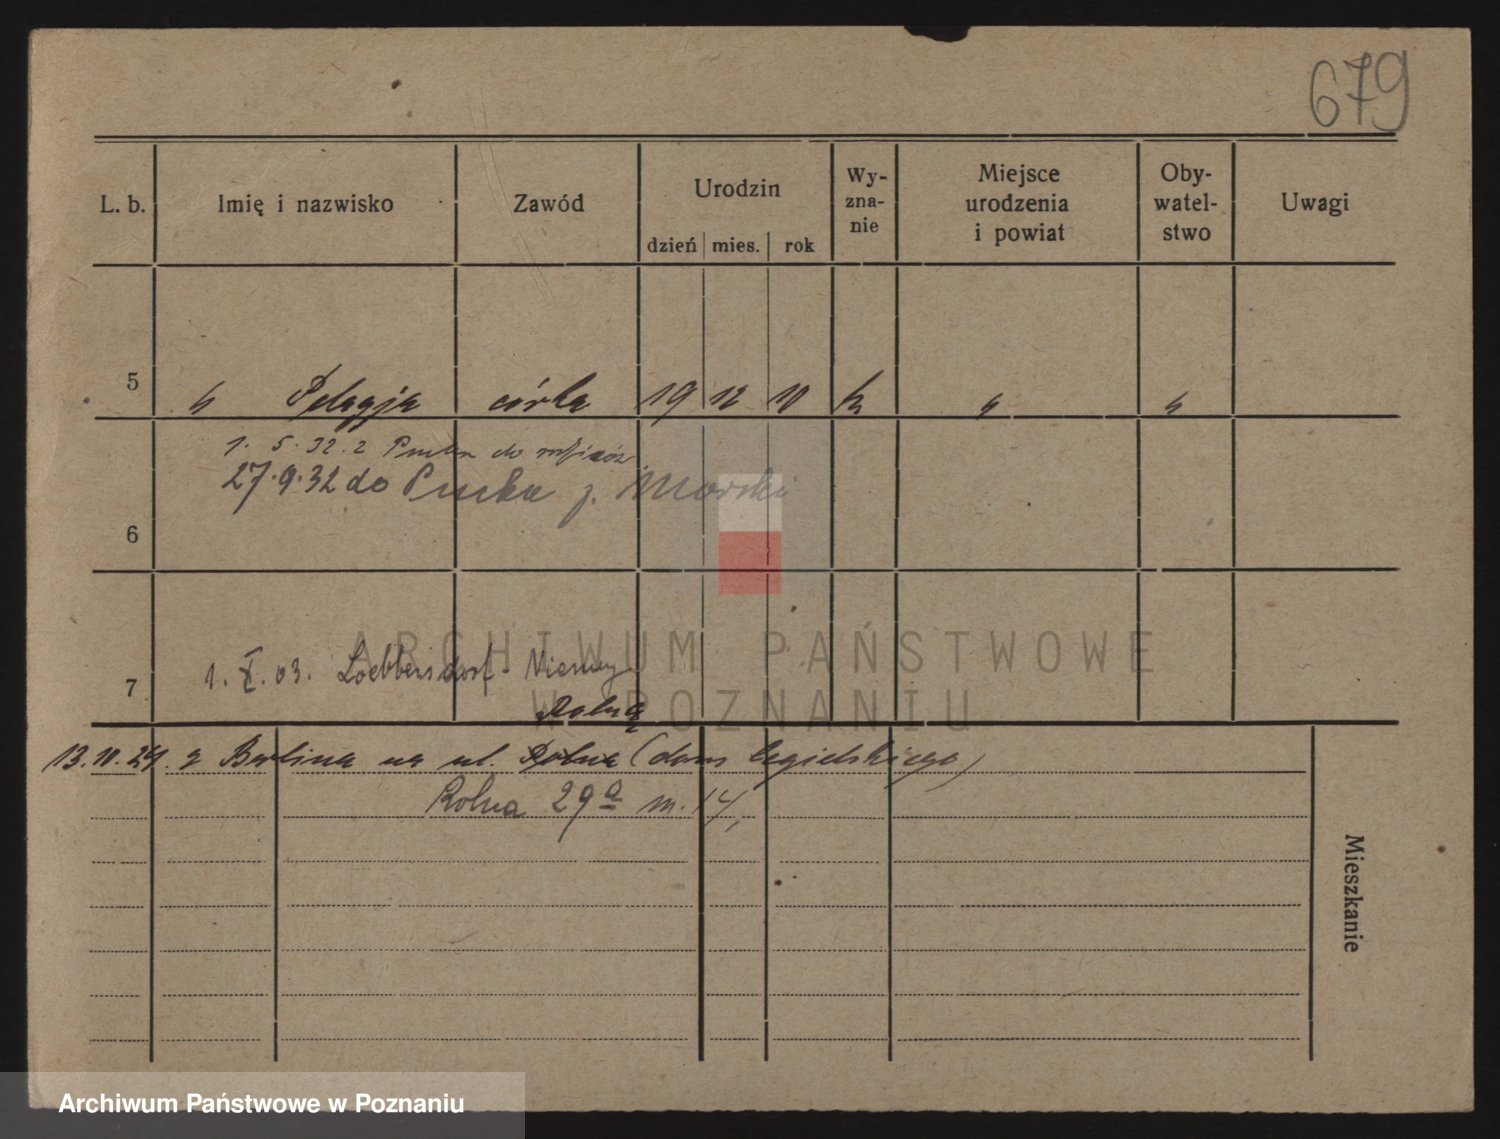 679
L. b. Imię i nazwisko Zawód Urodzin dzień mies. rok Wy-zna-nie Miejsce urodzenia i powiat Oby-watel-stwo Uwagi
5 " Pelagja córka 19 12 10 k " "
1. 5. 32. z Pucka do
27.9.32 do Pucka p. Morski
6
ARCHIWUM PAŃSTWOWE
7 1. X. 03. Loebbersdorf - Niemcy
W POZNANIU
Rolną
13.11.24 z Berlina na ul. Rolna (dom Cegielskiego)
Rolna 29a m. 14,
Mieszkanie
Archiwum Państwowe w Poznaniu